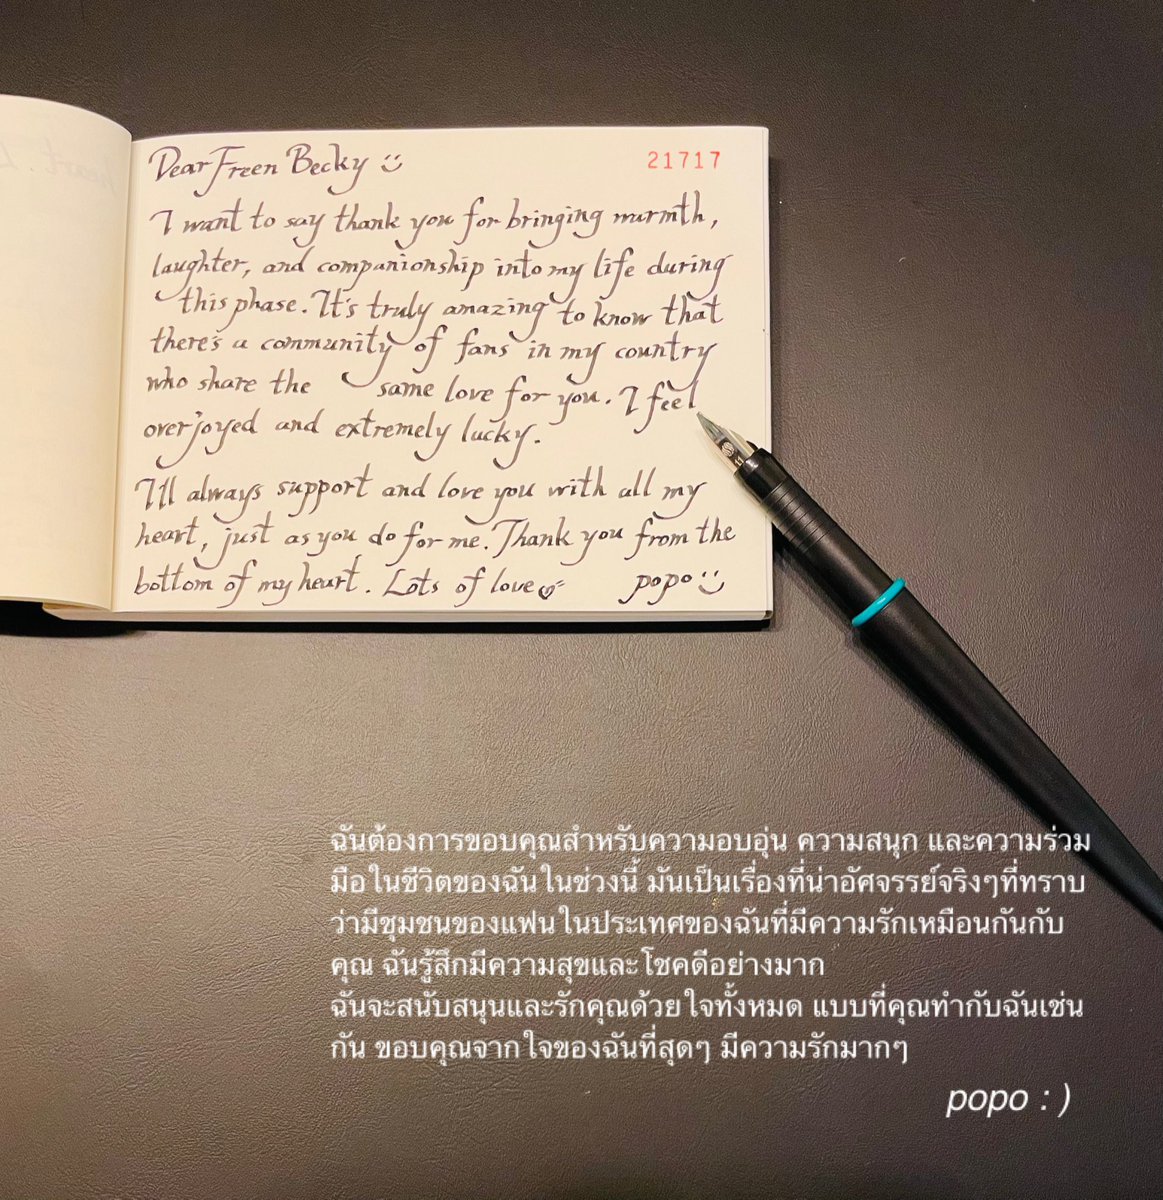 Dear Freen Becky
21717
I want to say thank you for bringing warmth,
laughter, and companionship into my life during
this phase. It's truly amazing to know that
there's a community of fans in my country
who share the same love for you. I feel
overjoyed and extremely lucky.
I'll always support and love you with all my
heart, just as you do for me. Thank you from the
bottom of my heart. Lots of love popo
ฉันต้องการขอบคุณสำหรับความอบอุ่น ความสนุก และความร่วม
มือในชีวิตของฉันในช่วงนี้ มันเป็นเรื่องที่น่าอัศจรรย์จริงๆที่ทราบ
ว่ามีชุมชนของแฟนในประเทศของฉันที่มีความรักเหมือนกันกับ
คุณ ฉันรู้สึกมีความสุขและโชคดีอย่างมาก
ฉันจะสนับสนุนและรักคุณด้วยใจทั้งหมด แบบที่คุณทำกับฉันเช่น
กัน ขอบคุณจากใจของฉันที่สุดๆ มีความรักมากๆ
popo : )